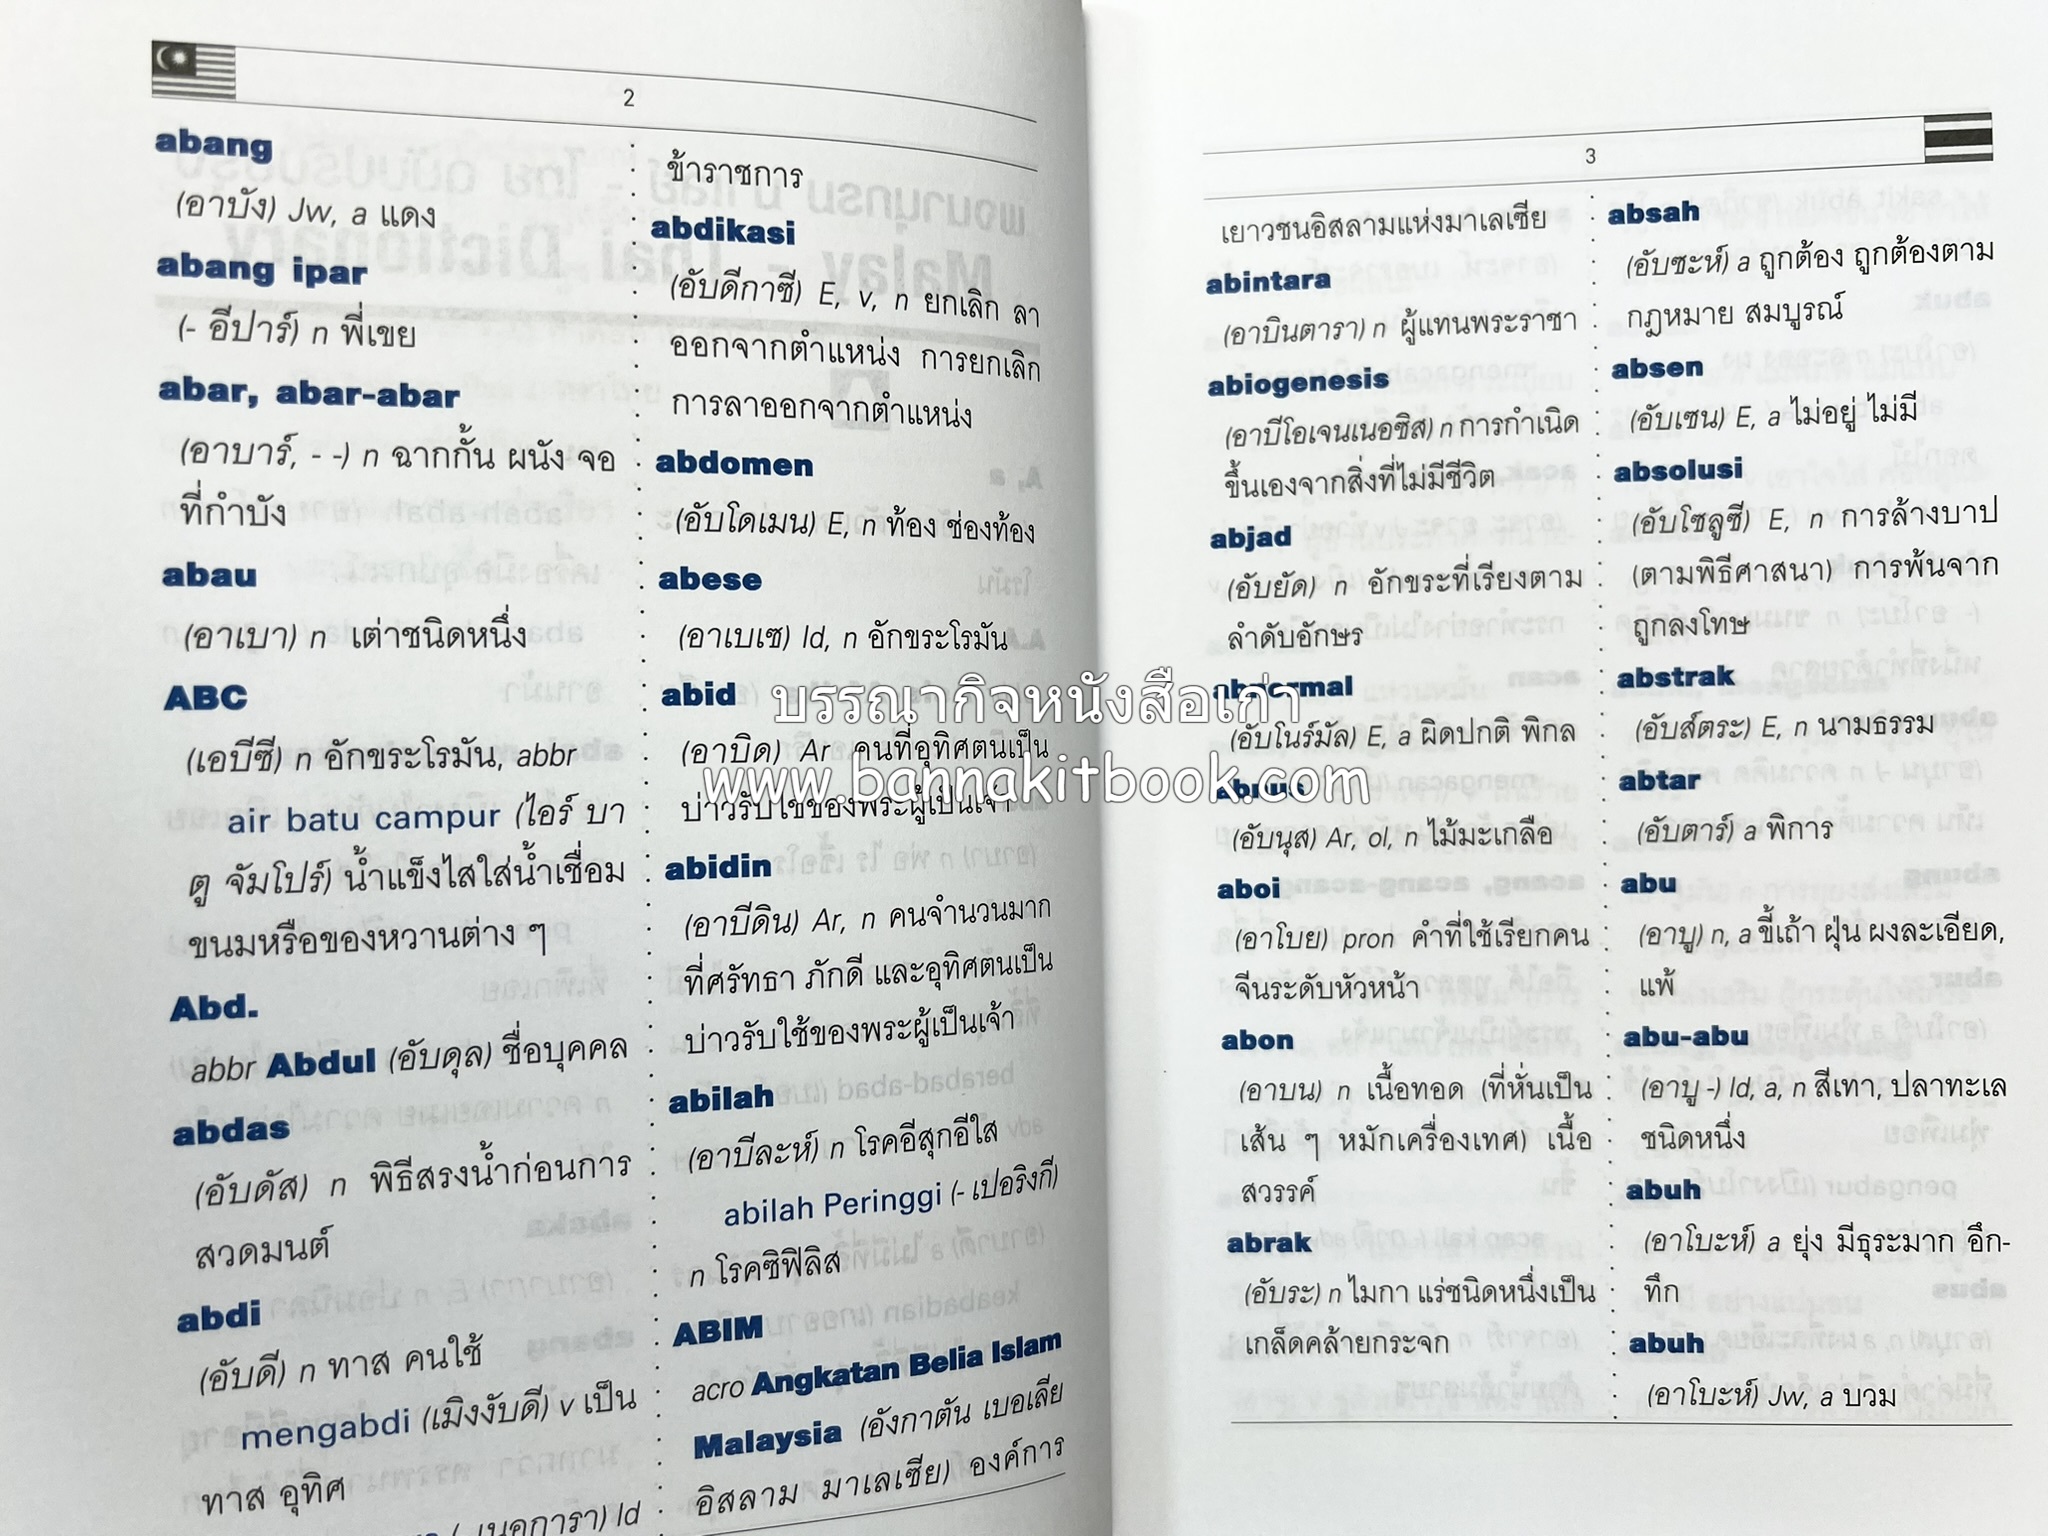 2
abang
(อาบัง) Jw, a แดง
abang ipar
(- อีปาร์) n พี่เขย
abar, abar-abar
(อาบาร์, - -) n ฉากกั้น ผนัง จอ
ที่กำบัง
abau
(อาเบา) n เต่าชนิดหนึ่ง
ABC
(เอบีซี) n อักขระโรมัน, abbr
air batu campur (ไอร์ บา
ตู จัมโปร์) น้ำแข็งไสใส่น้ำเชื่อม
ขนมหรือของหวานต่าง ๆ
Abd.
abbr Abdul (อับดุล) ชื่อบุคคล
abdas
(อับดัส) n พิธีสรงน้ำก่อนการ
สวดมนต์
abdi
(อับดี) n ทาส คนใช้
mengabdi (เมิงงับดี) v เป็น
ทาส อุทิศ
เนอการา) Id
ข้าราชการ
abdikasi
(อับดีกาซี) E, v, n ยกเลิก ลา
ออกจากตำแหน่ง การยกเลิก
การลาออกจากตำแหน่ง
abdomen
(อับโดเมน) E, n ท้อง ช่องท้อง
abese
(อาเบเซ) Id, n อักขระโรมัน
abid
(อาบิด) Ar คนที่อุทิศตนเป็น
บ่าวรับใช้ของพระผู้เป็นเจ้า
abidin
(อาบีดิน) Ar, n คนจำนวนมาก
ที่ศรัทธา ภักดี และอุทิศตนเป็น
บ่าวรับใช้ของพระผู้เป็นเจ้า
abilah
(อาบีละห์) n โรคอีสุกอีใส
abilah Peringgi (- เปอริงกี)
n โรคซิฟิลิส
ABIM
acro Angkatan Belia Islam
Malaysia (อังกาตัน เบอเลีย
อิสลาม มาเลเซีย) องค์การ
3
เยาวชนอิสลามแห่งมาเลเซีย
abintara
(อาบินตารา) n ผู้แทนพระราชา
abiogenesis
(อาบีโอเจนเนอซิส) n การกำเนิด
ขึ้นเองจากสิ่งที่ไม่มีชีวิต
abjad
(อับยัด) n อักขระที่เรียงตาม
ลำดับอักษร
abnormal
(อับโนร์มัล) E, a ผิดปกติ พิกล
abnus
(อับนุส) Ar, ol, n ไม้มะเกลือ
aboi
(อาโบย) pron คำที่ใช้เรียกคน
จีนระดับหัวหน้า
abon
(อาบน) n เนื้อทอด (ที่หั่นเป็น
เส้น ๆ หมักเครื่องเทศ) เนื้อ
สวรรค์
abrak
(อับระ) n ไมกา แร่ชนิดหนึ่งเป็น
เกล็ดคล้ายกระจก
absah
(อับซะห์) a ถูกต้อง ถูกต้องตาม
กฎหมาย สมบูรณ์
absen
(อับเซน) E, a ไม่อยู่ ไม่มี
absolusi
(อับโซลูซี) E, n การล้างบาป
(ตามพิธีศาสนา) การพ้นจาก
ถูกลงโทษ
abstrak
(อับส์ตระ) E, n นามธรรม
abtar
(อับตาร์) a พิการ
abu
(อาบู) n, a ขี้เถ้า ฝุ่น ผงละเอียด,
แพ้
abu-abu
(อาบู -) Id, a, n สีเทา, ปลาทะเล
ชนิดหนึ่ง
abuh
(อาโบะห์) a ยุ่ง มีธุระมาก อึก-
ทึก
abuh
(อาโบะห์) Jw, a บวม
บรรณากิจหนังสือเก่า
www.bannakitbook.com